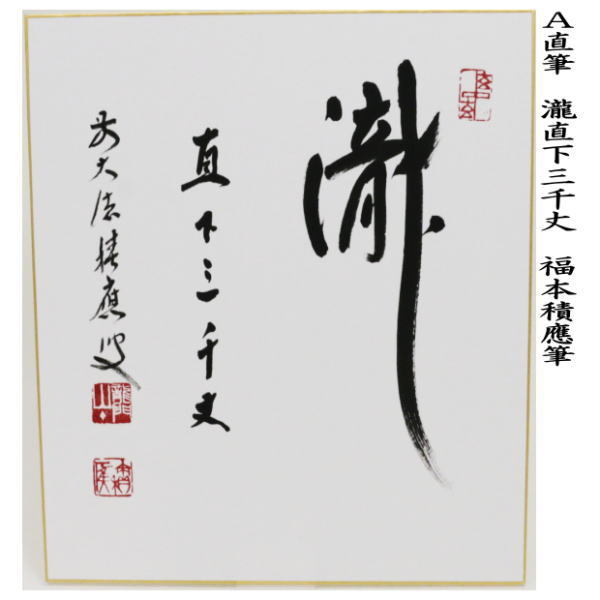 A直筆 瀧直下三千丈 福本積應筆
瀧
直下三千丈
前大徳積應叟